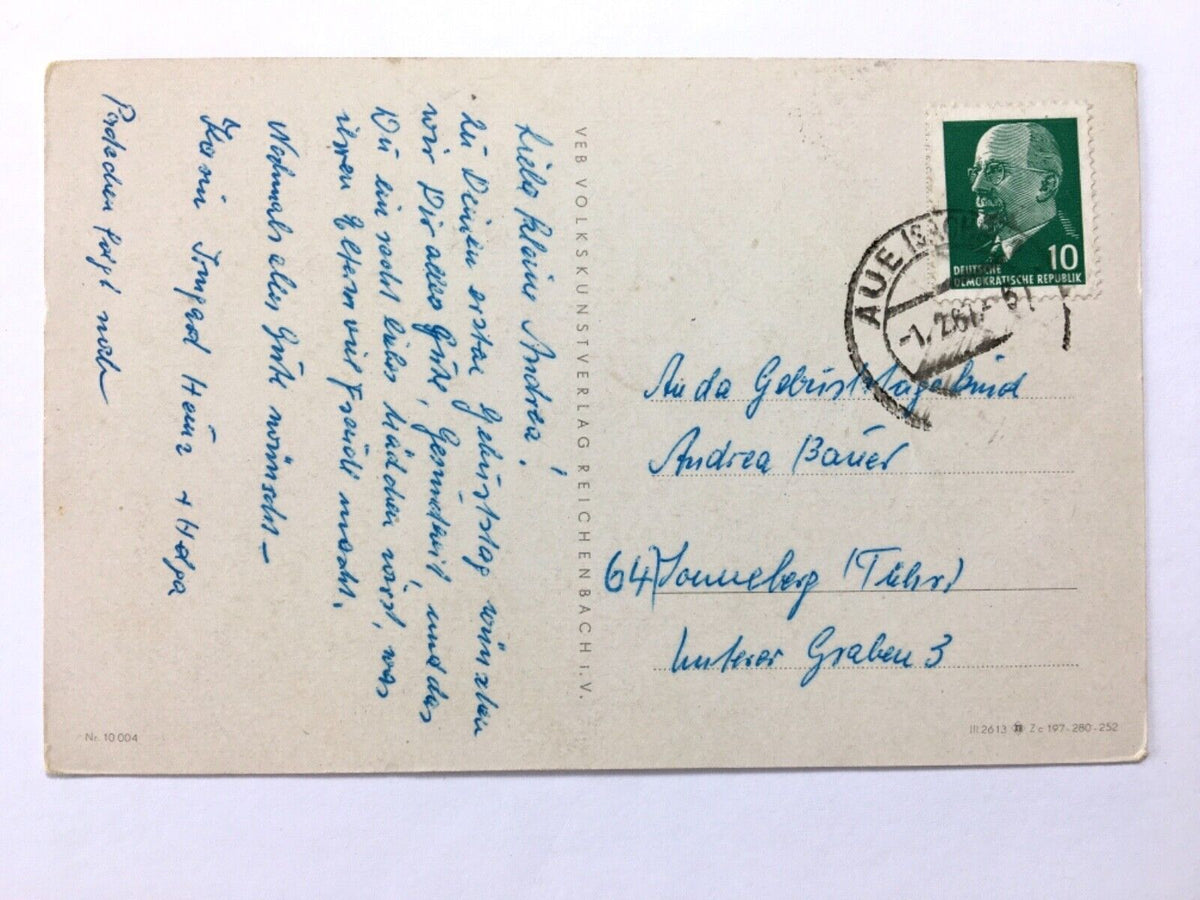 Liebe kleine Andrea!
Zu Deinem ersten Geburtstag wünschen
wir Dir alles Gute, Gesundheit und das
Du ein recht liebes Mädchen wirst, was
ihren Eltern viel Freude macht.
Nochmals alles Gute wünscht –
Karin Irmgard Heinz + Helga
Päckchen folgt noch
VEB VOLKSKUNSTVERLAG REICHENBACH I. V.
Nr. 10 004
10
DEUTSCHE
DEMOKRATISCHE REPUBLIK
AUE (SACHS
An da Geburtstagskind
Andrea Bauer
64) Sonneberg (Thür)
Unterer Graben 3
III 26 13 Zc 197-280-252